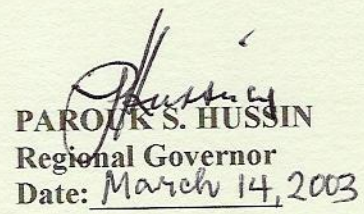 PAROUK S. HUSSIN
Regional Governor
Date: March 14, 2003